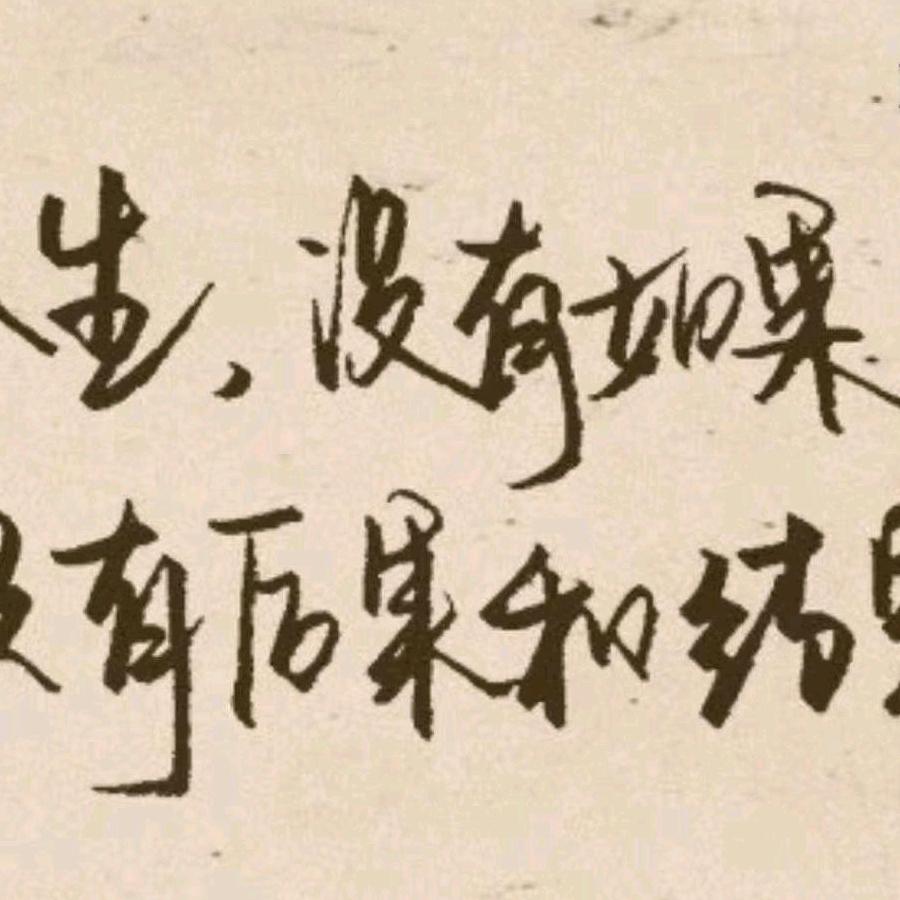 生，没有如果
有后果和结